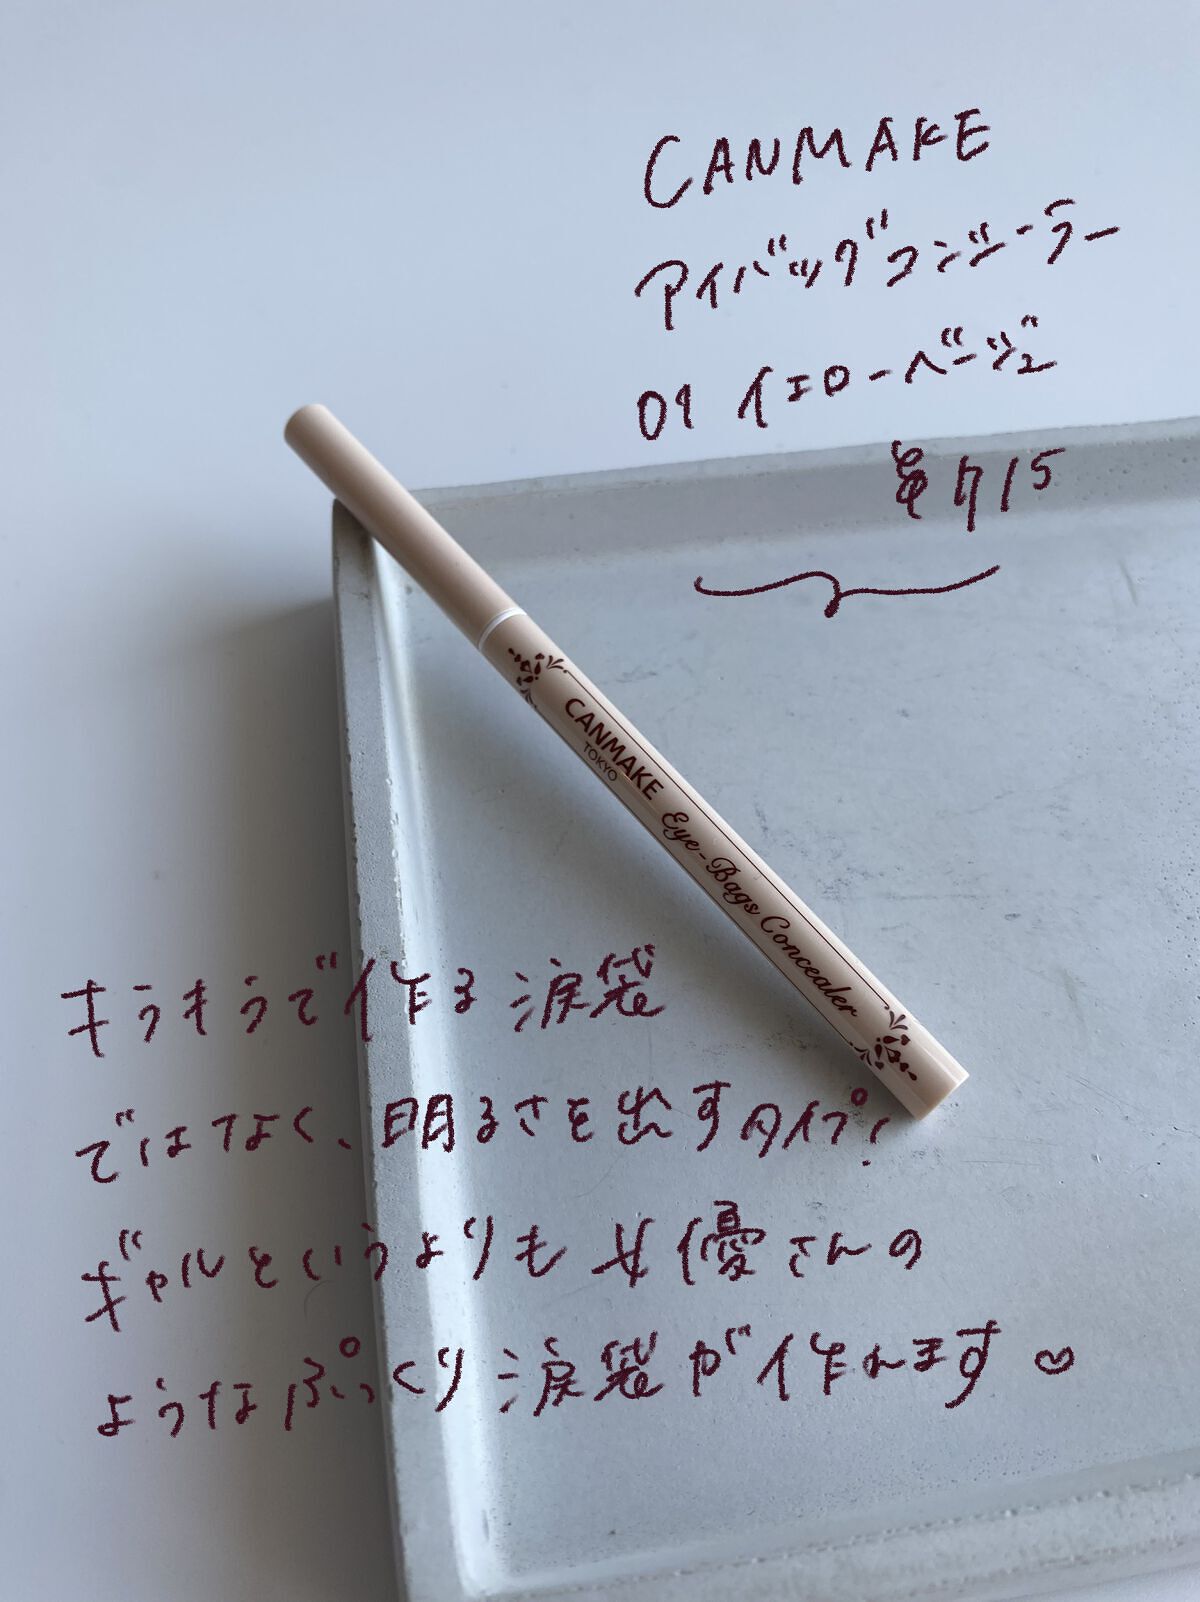 CANMAKE
アイバッグコンシーラー
01 イエローベージュ
¥715
CANMAKE
TOKYO
Eye-Bags Concealer
キラキラで作る涙袋
ではなく、明るさを出すタイプ!
ギャルというよりも女優さんの
ようなぷっくり涙袋が作れます♡